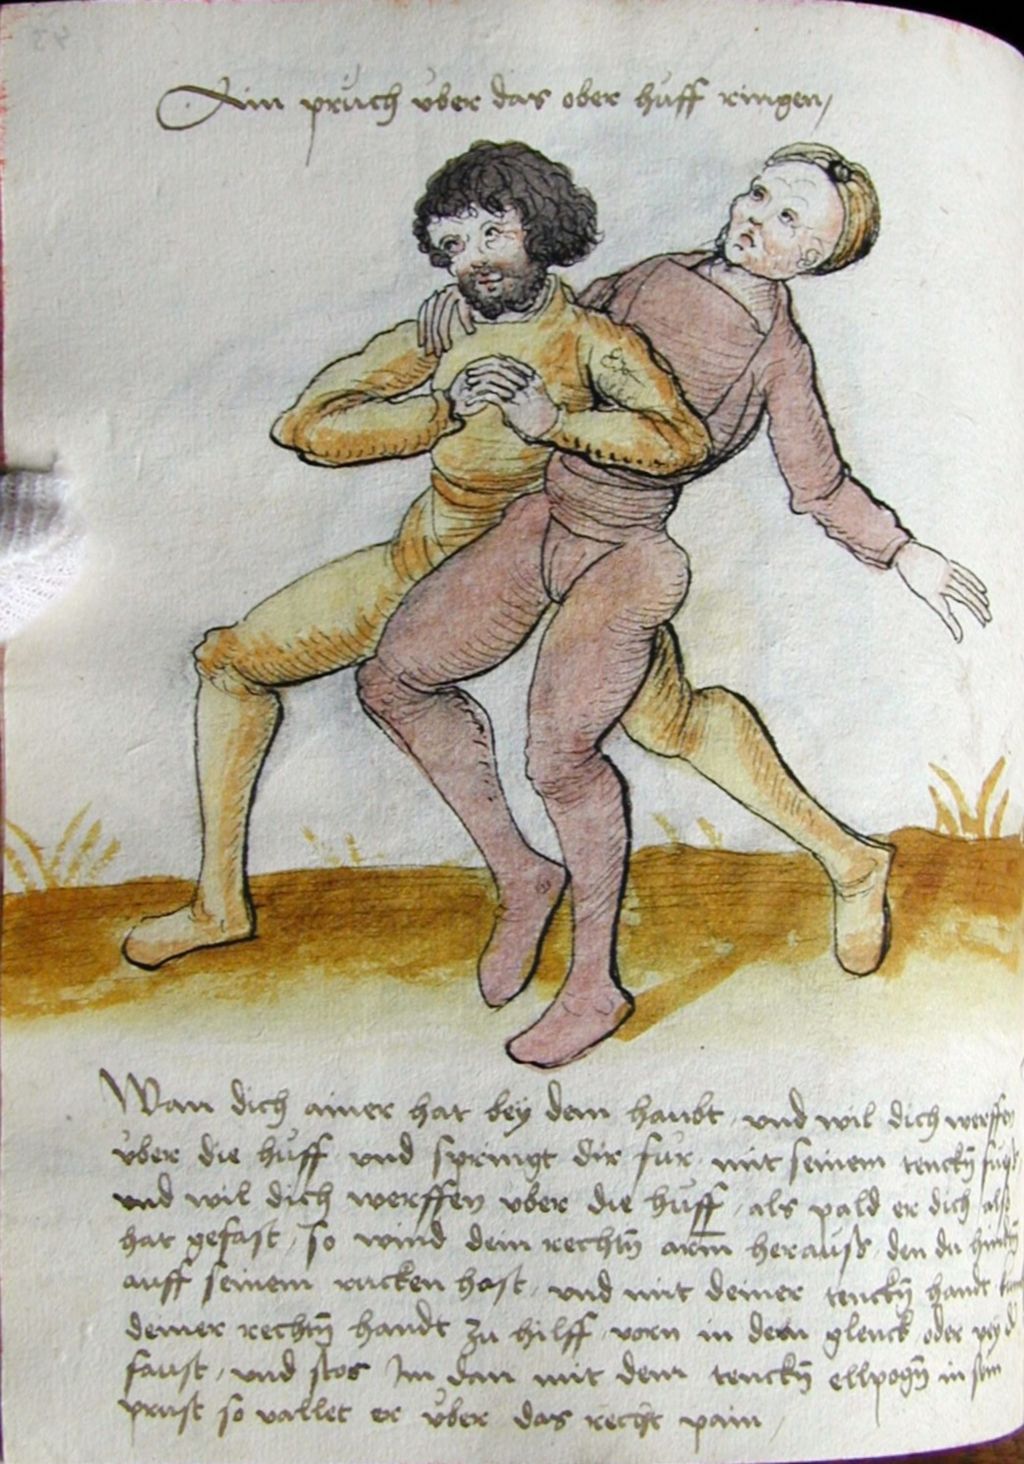 Ain pruch über das ober huff ringen
Wan dich ainer hat bey dem haubt und wil dich werffen
über die hüff und springt dir für mit seinem tenckn̄ fuß
und wil dich werffen über die hüff als pald er dich also
hat gefast so wind dein rechtn̄ arm herauß den du hindn̄
auff seinem rucken hast und mit deiner tenckn̄ handt
deiner rechtn̄ handt zu hilff vorn in dem glenck oder pey d
faust und stos Im dan mit dem tenckn̄ ellpogn̄ in sein
prust so vallet er über das recht pain